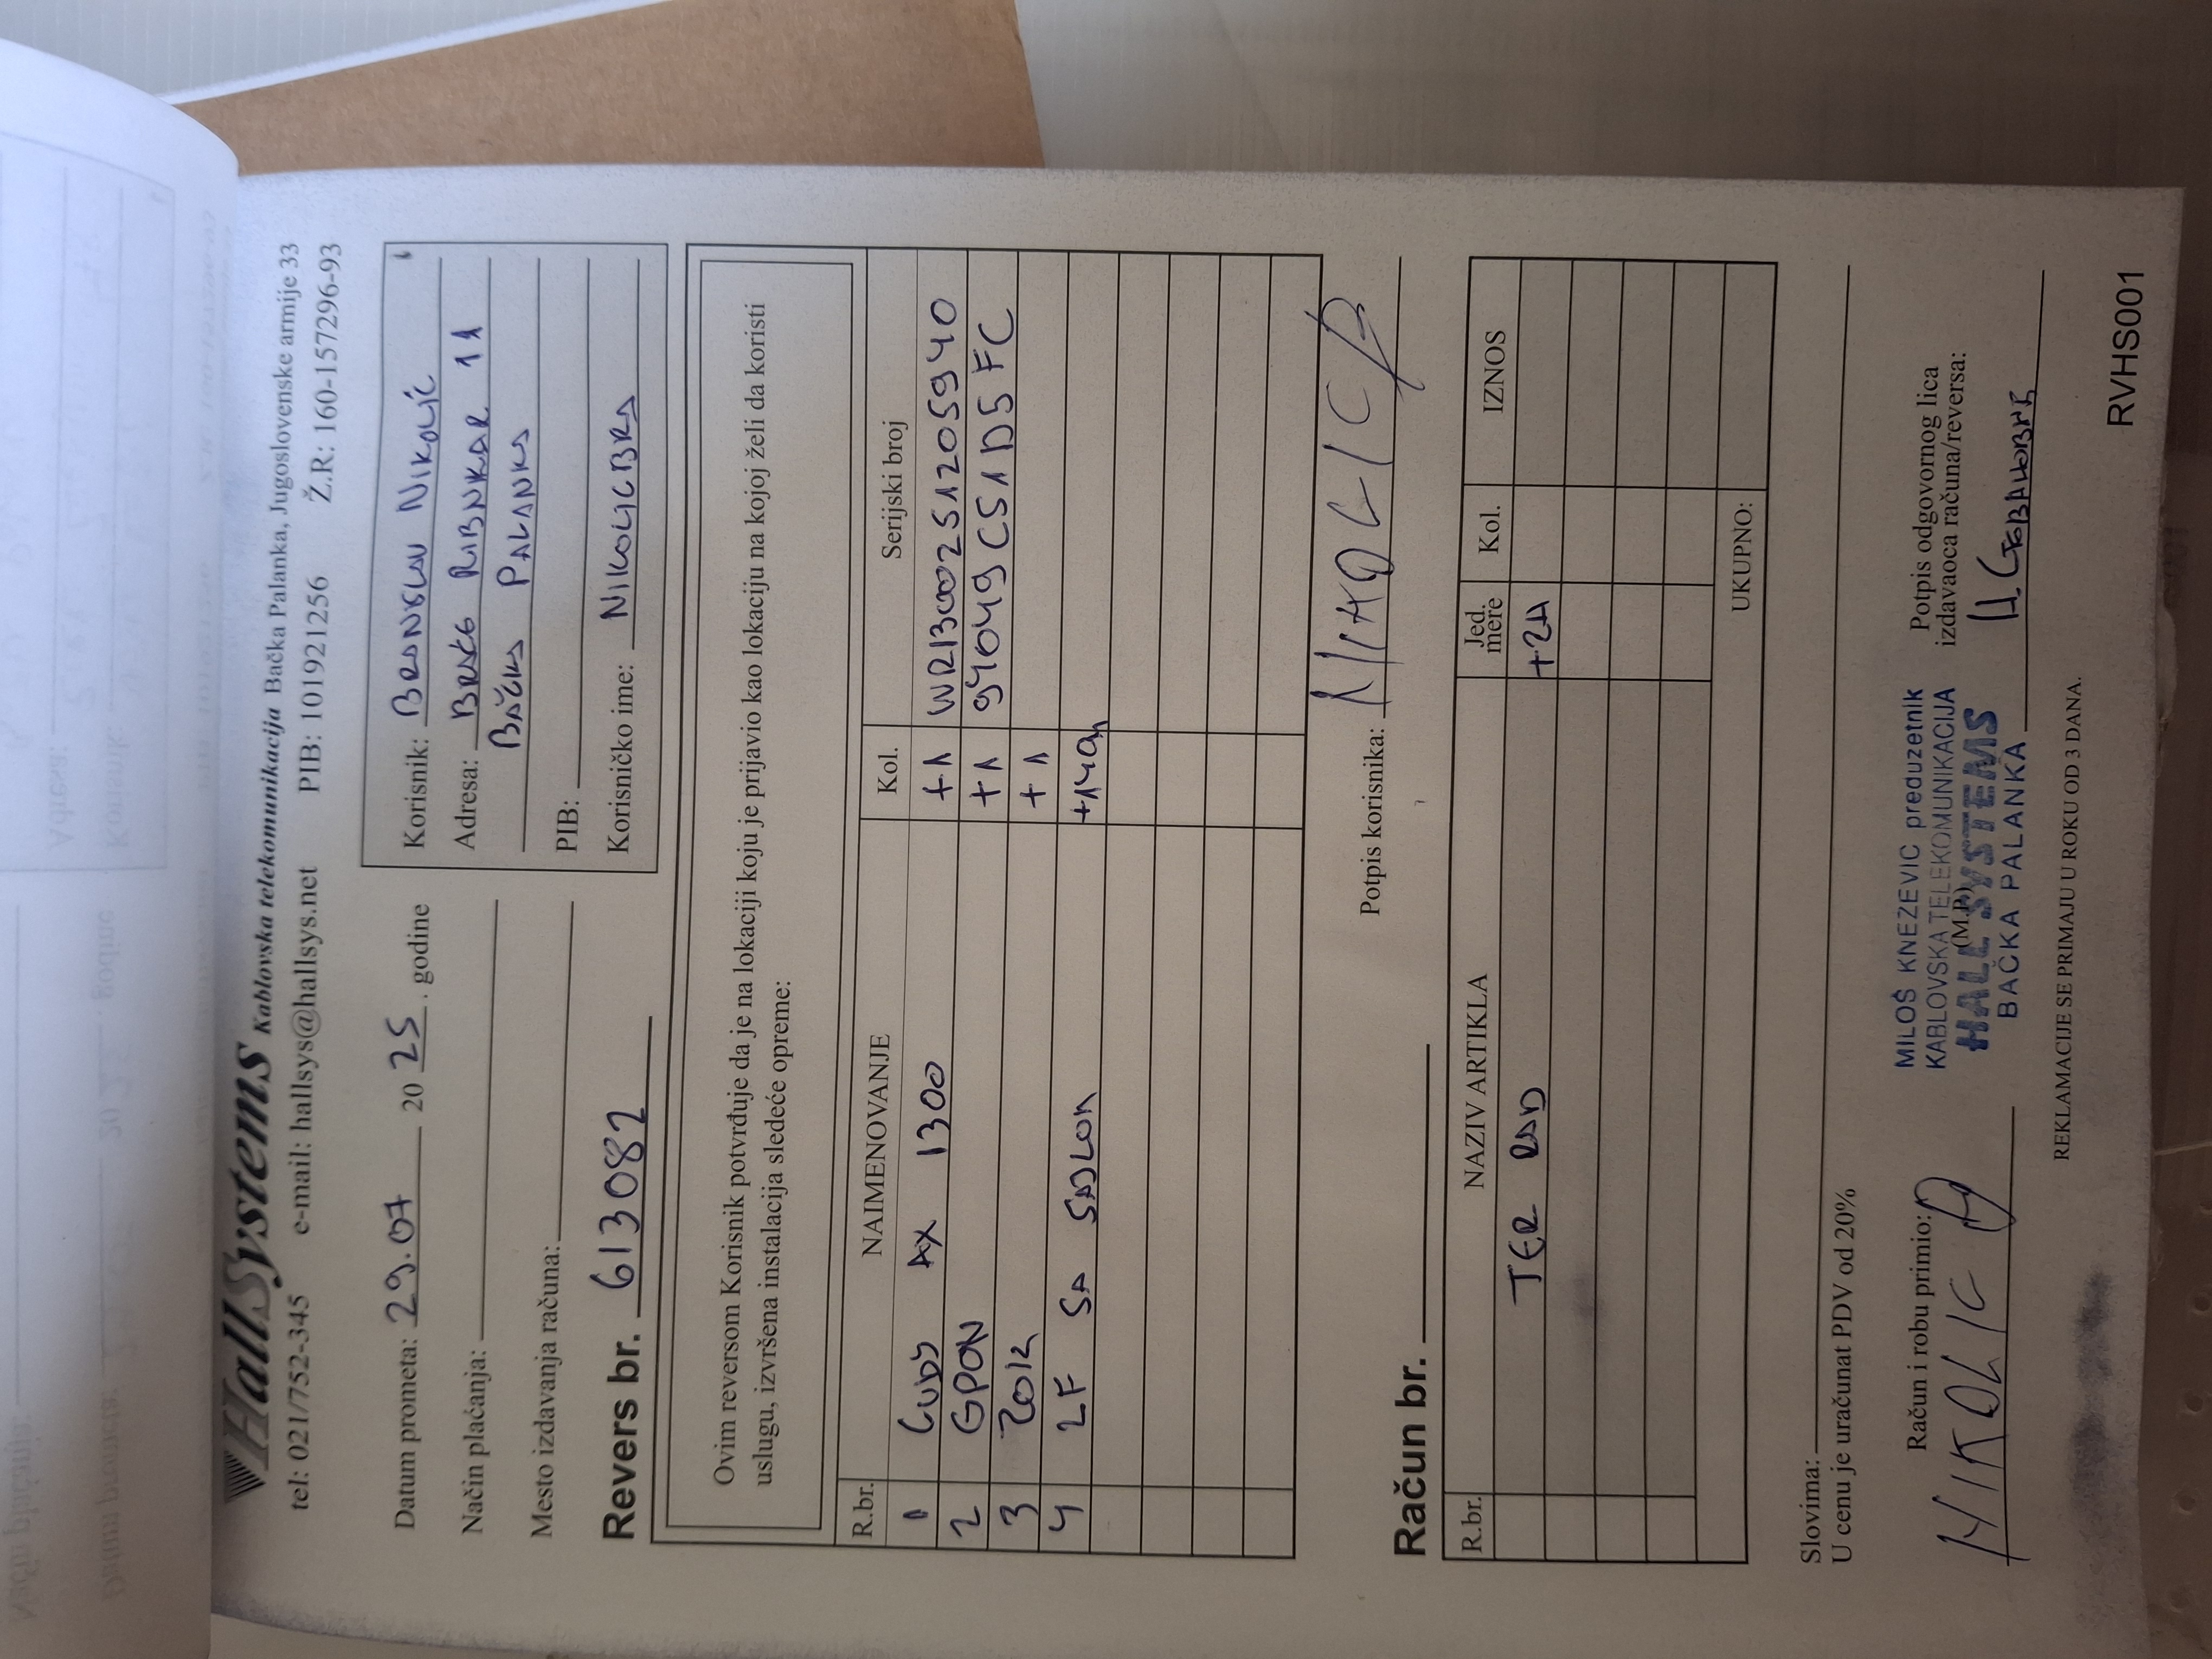 HallSystems Kablovska telekomunikacija Bačka Palanka, Jugoslovenske armije 33
tel: 021/752-345 e-mail: hallsys@hallsys.net PIB: 101921256 Ž.R: 160-157296-93
Datum prometa: 29.07 20 25. godine
Način plaćanja:
Mesto izdavanja računa:
Revers br. 613082
Korisnik: BRONISLAV NIKOLIĆ
Adresa: BRAĆE RIBNIKAR 11
BAČKA PALANKA
PIB:
Korisničko ime: NIKOLICBRA
Ovim reversom Korisnik potvrđuje da je na lokaciji koju je prijavio kao lokaciju na kojoj želi da koristi
uslugu, izvršena instalacija sledeće opreme:
R.br. NAIMENOVANJE Kol. Serijski broj
1 CUDY AX 1300 +1 WR1300251205940
2 GPON +1 94049C51D5FC
3 +1
4 SA
Potpis korisnika: NIKOLIC
Račun br.
R.br. NAZIV ARTIKLA Jed. mere Kol. IZNOS
TER RAD +2H
UKUPNO:
Slovima:
U cenu je uračunat PDV od 20%
Račun i robu primio:
NIKOLIC
MILOŠ KNEZEVIC preduzetnik
KABLOVSKA TELEKOMUNIKACIJA
(M.P.)
HALL SYSTEMS
BAČKA PALANKA
Potpis odgovornog lica
izdavaoca računa/reversa:
REKLAMACIJE SE PRIMAJU U ROKU OD 3 DANA.
RVHS001